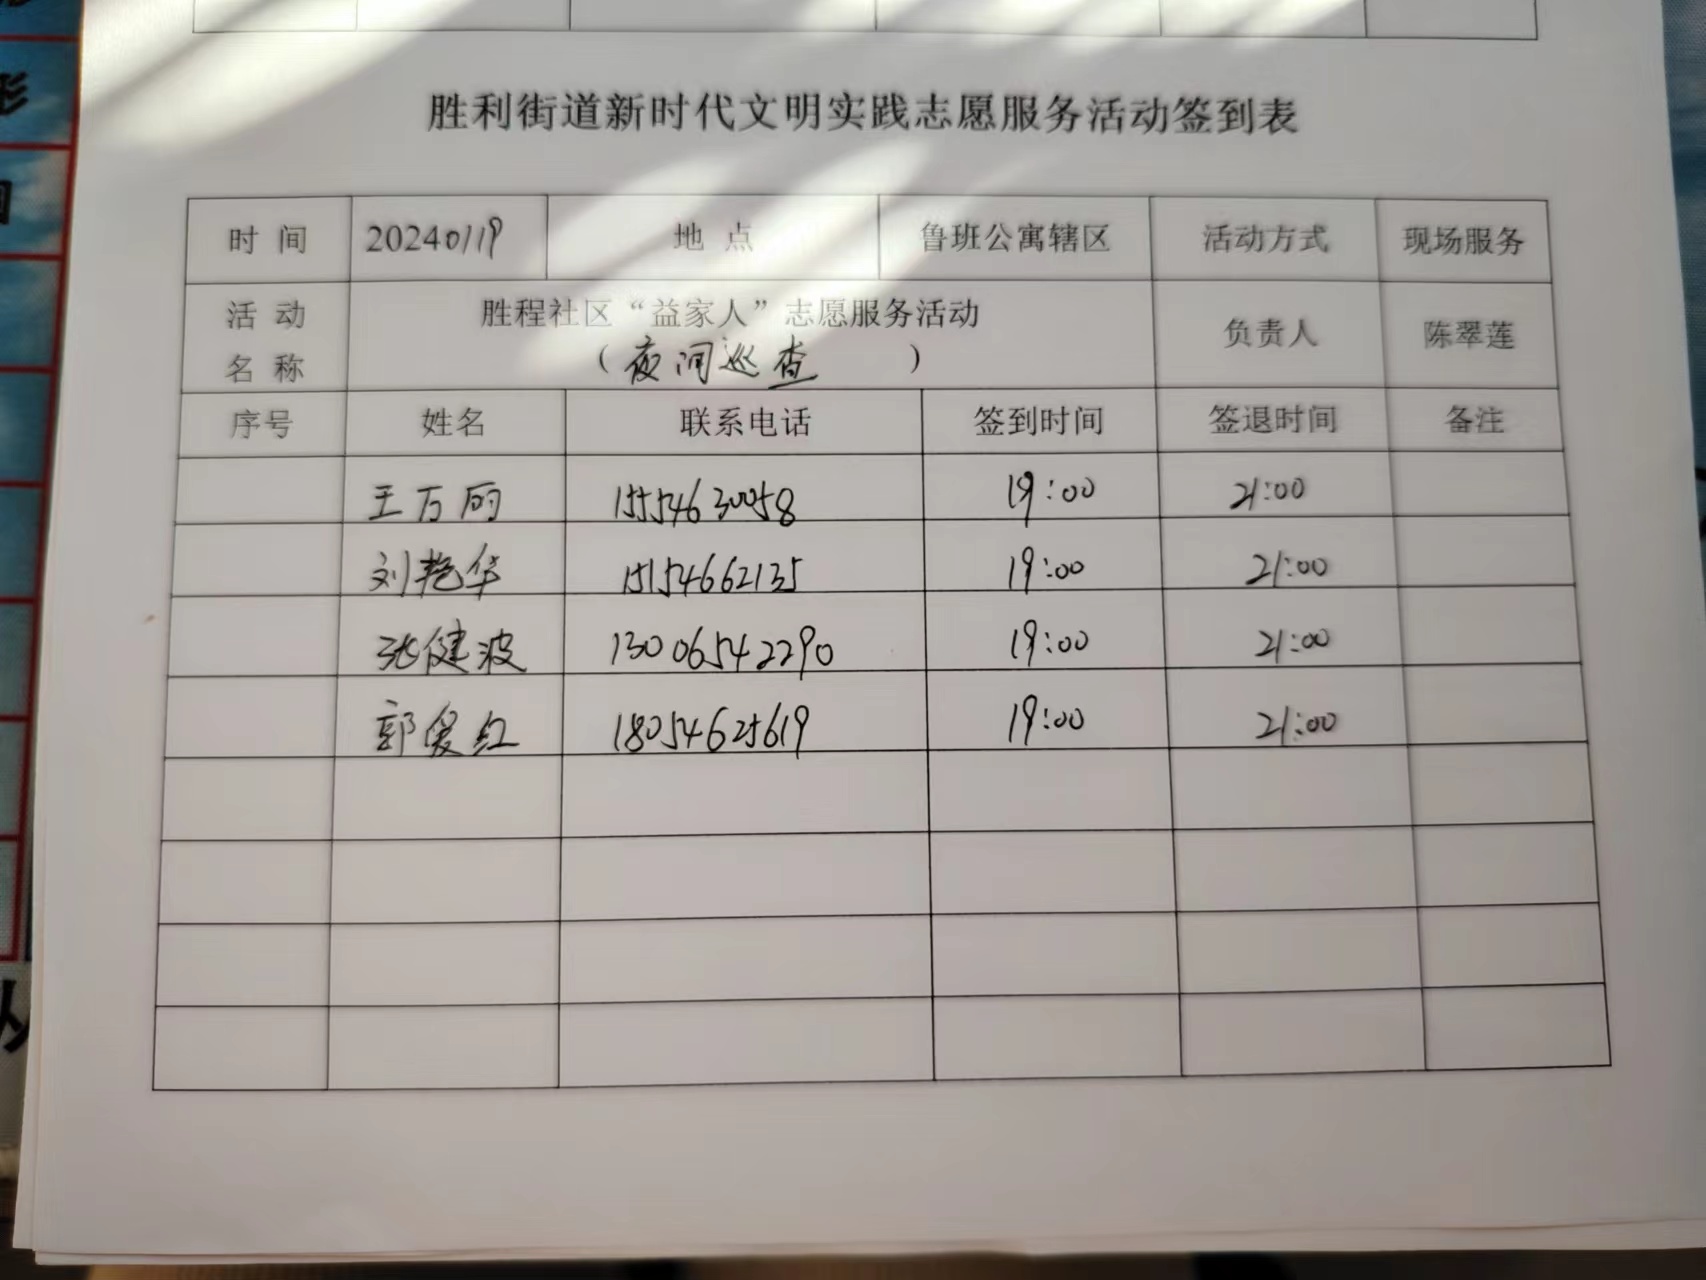 形
胜利街道新时代文明实践志愿服务活动签到表
时 间 20240119 地 点 鲁班公寓辖区 活动方式 现场服务
活 动 名 称 胜程社区“益家人”志愿服务活动 负责人 陈翠莲
（夜间巡查 ）
序号 姓名 联系电话 签到时间 签退时间 备注
王万丽 15554630058 19:00 21:00
刘艳华 15154662135 19:00 21:00
张健波 13006542290 19:00 21:00
郭爱红 18054625619 19:00 21:00